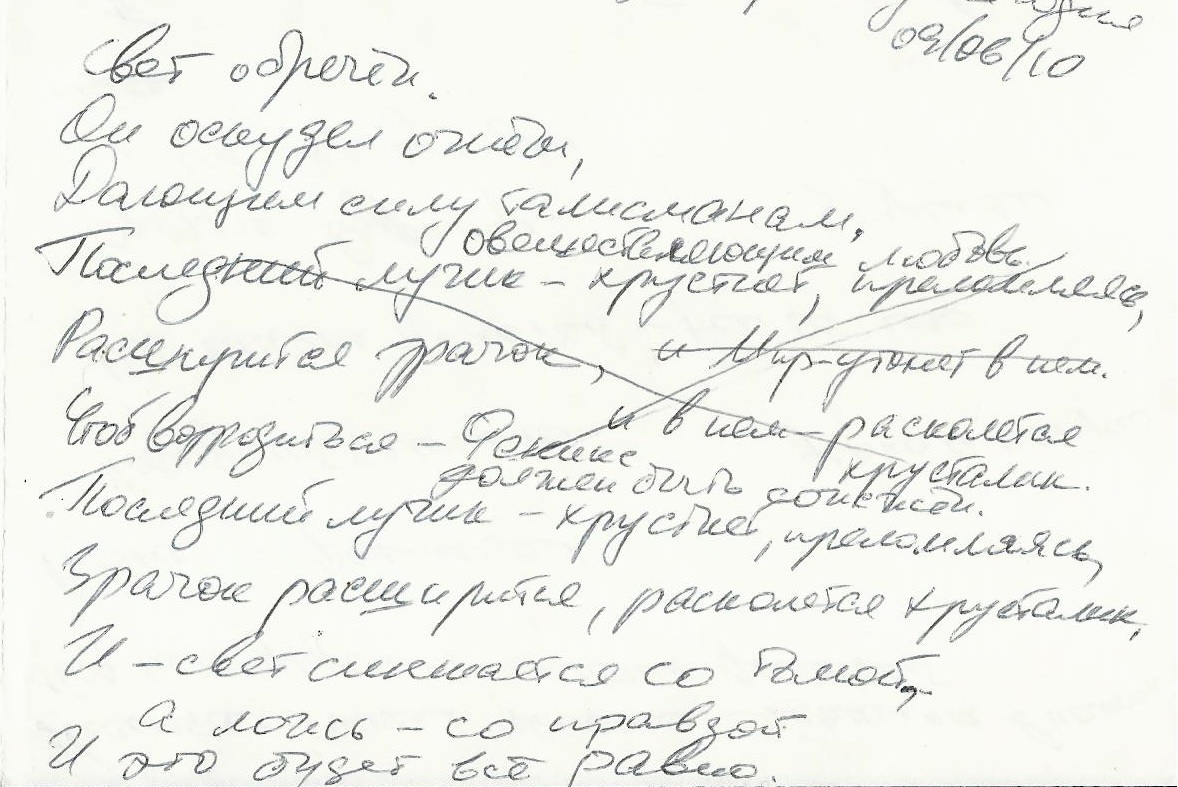 09/06/10
Свет обречён.
Он оскудел огнём,
Дающим силу талисманам,
овеществляющим любовь.
Последний лучик – хрустнет, преломляясь,
Расширится зрачок, и Мир – утонет в нём.
и в нём – расколется
хрусталик.
Чтоб возродиться – Феникс
должен быть сожжён.
Последний лучик – хрустнет, преломляясь,
Зрачок расширится, расколется хрусталик,
И – свет смешается со тьмой,
А ложь – со правдой
И это будет всё равно.